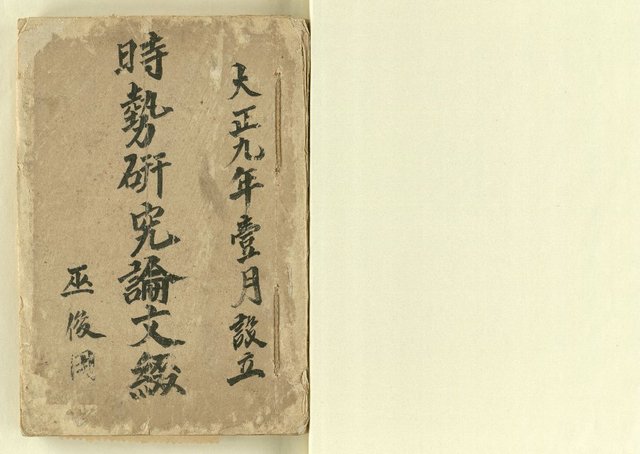 大正九年壹月設立
時勢研究論文綴
巫俊國